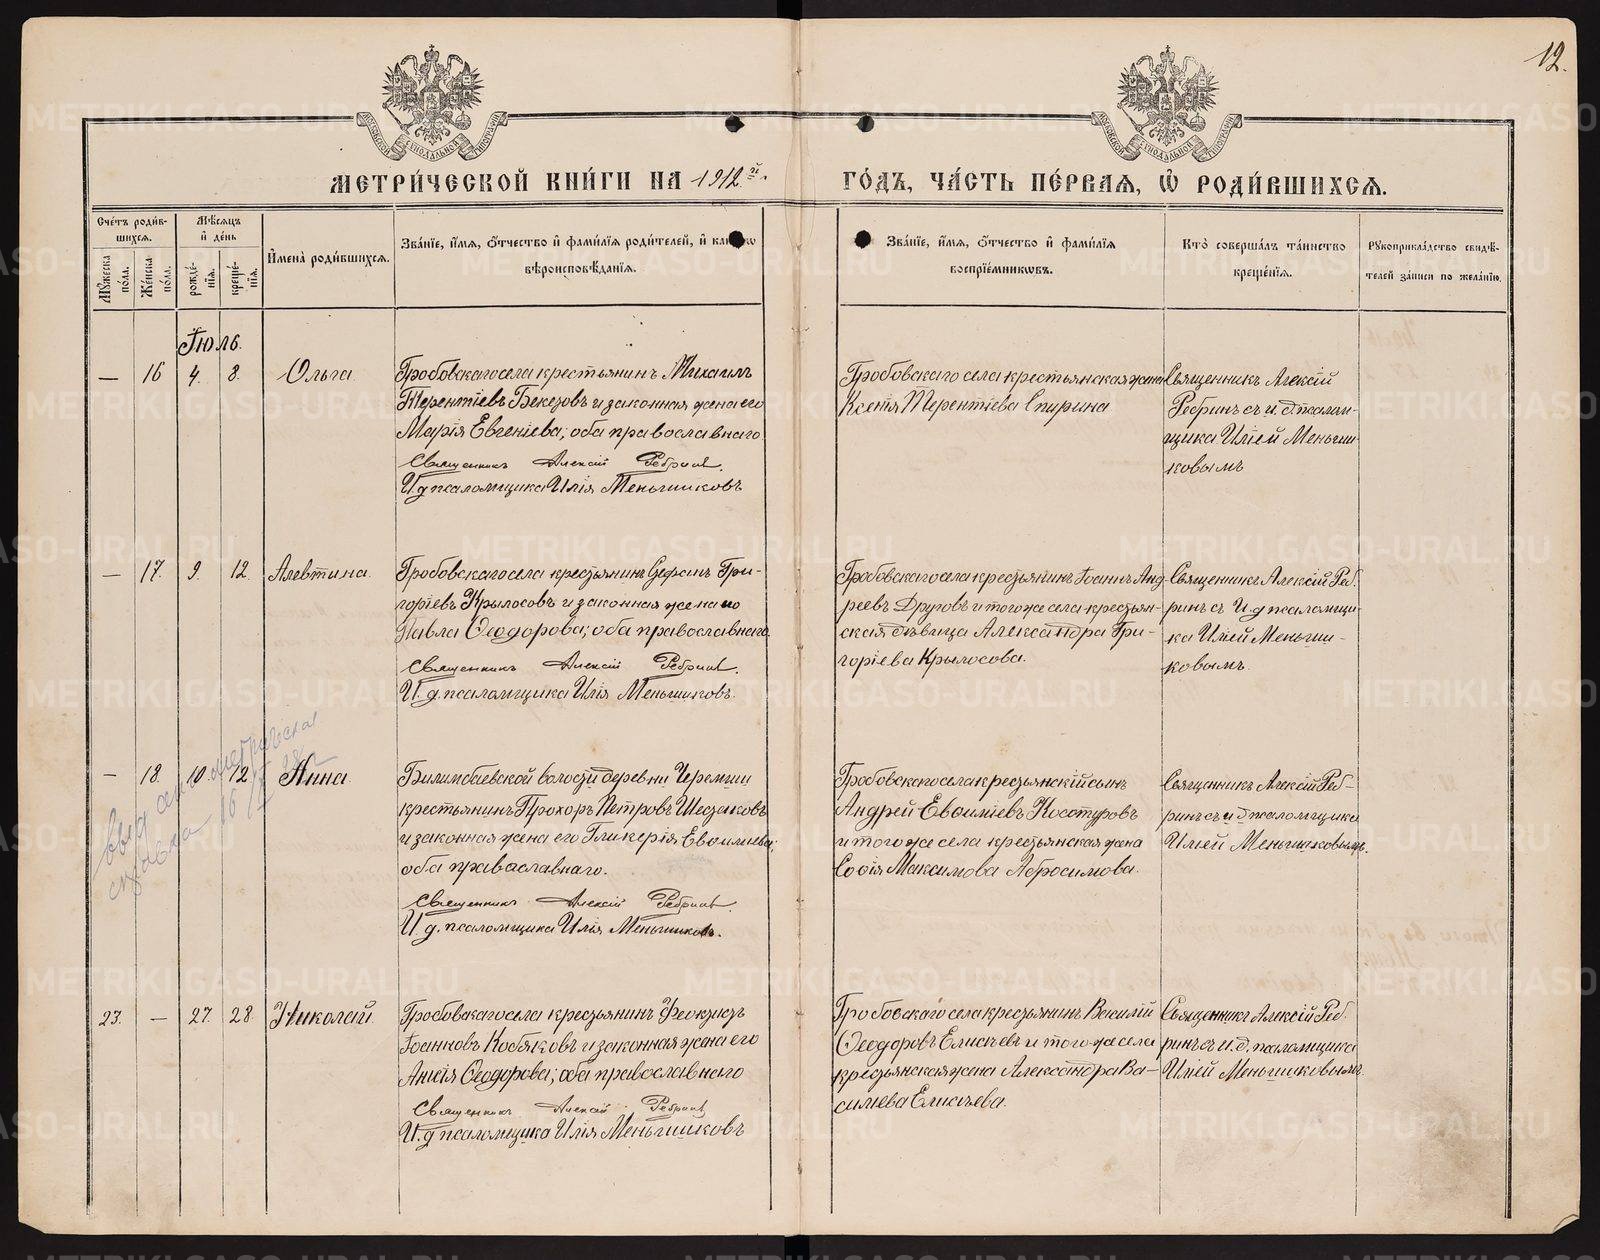 12.
МЕТРИ́ЧЕСКОЙ КНИ́ГИ НА 1912 й.
ГО́ДЪ, ЧА́СТЬ ПЕ́РВАѦ, Ѽ РОДИ́ВШИХСѦ.
Сче́тъ роди́в-
шихсѧ.
Мѣ́сѧцъ
и҆ де́нь
И҆мена̀ роди́вшихсѧ.
Зва́нїе, и҆́мѧ, ѻ҆́тчество и҆ фами́лїѧ роди́телей, и҆
вѣроисповѣ́данїѧ.
Зва́нїе, и҆́мѧ, ѻ҆́тчество и҆ фами́лїѧ
воспрїе́мникѡвъ.
Кто̀ соверша́лъ та́инство
креще́нїѧ.
Рꙋкоприкла́дство свидѣ́-
телей за́писи по жела́нїю.
Мꙋ́жеска
по́ла.
Же́нска
по́ла.
рожде́-
нїѧ.
креще́-
нїѧ.
Іюль.
— 16 4. 8. Ольга
Гробовскаго села крестьянинъ Михаилъ
Терентіевъ Бекетовъ и законная жена его
Марія Евгеніева; оба православнаго
Священникъ Алексій Ребринъ.
И. д. псаломщика Илія Меньшиковъ
Гробовскаго села крестьянская жена
Ксенія Терентіева Спирина
Священникъ Алексій
Ребринъ съ и. д. псалом-
щика Иліей Меньши-
ковымъ
— 17. 9. 12. Алевтина
Гробовскаго села крестьянинъ Стефанъ Гри-
горіевъ Крылосовъ и законная жена его
Павла Ѳеодорова; оба православнаго.
Священникъ Алексій Ребринъ.
И. д. псаломщика Илія Меньшиковъ.
Гробовскаго села крестьянинъ Іоаннъ Анд-
реевъ Друговъ и того же села крестьян-
ская дѣвица Александра Гри-
горіева Крылосова.
Священникъ Алексій Реб.
ринъ съ И. д. псаломщи-
ка Иліей Меньши-
ковымъ.
— 18. 10. 12 Анна
Билимбаевской волости деревни Черемши
крестьянинъ Прохоръ Петровъ Шестаковъ
и законная жена его Гликерія Евѳиміева;
оба православнаго.
Священникъ Алексій Ребринъ.
И. д. псаломщика Илія Меньшиковъ.
Гробовскаго села крестьянскій сынъ
Андрей Евѳиміевъ Косотуровъ
и того же села крестьянская жена
Софія Максимова Абросимова.
Священникъ Алексій Реб-
ринъ съ и д псаломщика
Иліей Меньшиковымъ.
справка 16
23. — 27. 28. Николай
Гробовскаго села крестьянинъ Феоктистъ
Іоанновъ Кобяковъ и законная жена его
Анисія Ѳеодорова; оба православнаго
Священникъ Алексій Ребринъ
И. д псаломщика Илія Меньшиковъ
Гробовскаго села крестьянинъ Василій
Ѳеодоровъ Елисѣевъ и того же села
крестьянская жена Александра Ва-
силіева Елисѣева.
Священникъ Алексій Реб.
ринъ съ и. д. псаломщика
Иліей Меньшиковымъ.
METRIKI.GASO-URAL.RU